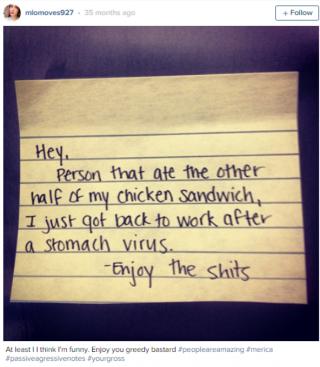 mlomoves927 • 35 months ago
+ Follow
Hey,
Person that ate the other
half of my chicken sandwich,
I just got back to work after
a stomach virus.
-Enjoy the shits
At least I I think I'm funny. Enjoy you greedy bastard #peopleareamazing #merica
#passiveagressivenotes #yourgross